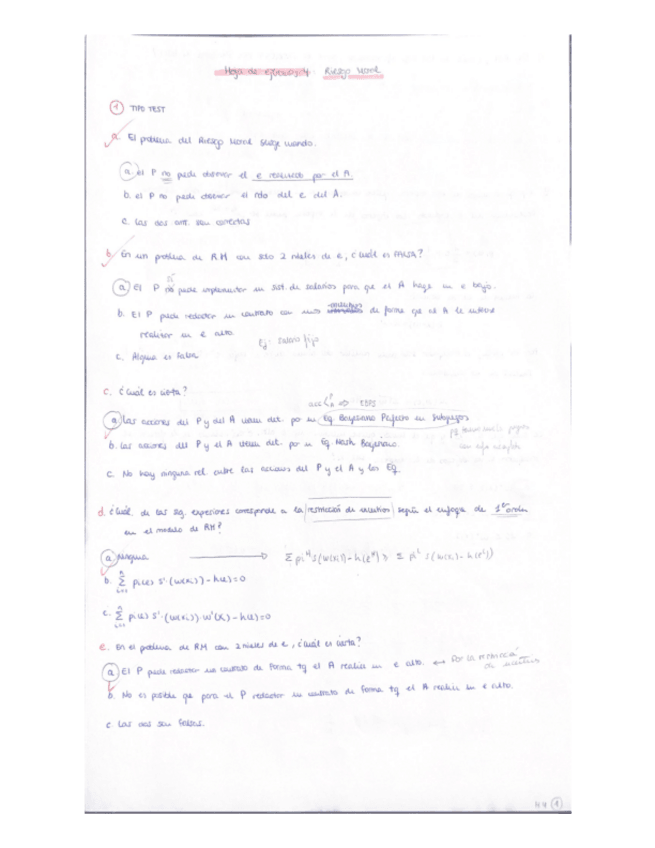 Hoja de ejercicios 4 Riesgo Moral
1 TIPO TEST
a. El problema del Riesgo Moral surge cuando.
a. el P no puede observar el e realizado por el A.
b. el P no puede observar el rdo del e del A.
c. Las dos ant. son correctas
b. En un problema de RM con solo 2 niveles de e, ¿cuál es FALSA?
sí
a. El P no puede implementar un sist. de salarios para que el A haga un e bajo.
incentivos
b. El P puede redactar un contrato con de forma que el A le interese
realizar un e alto.
Ej: salario fijo
c. Alguna es falsa
c. ¿Cuál es cierta?
a. Las acciones del P y del A vienen det. por un Eq. Bayesiano Perfecto en Subjuegos
b. Las acciones del P y el A vienen det. por un Eq Nash Bayesiano.
c. No hay ninguna rel. entre las acciones del P y el A y los Eq.
d. ¿Cuál de las sig. expresiones corresponde a la restricción de incentivos según el enfoque de 1er orden
en el modelo de RM?
a. ninguna → Σ pi^H S(w(xi)) - h(e^H) ≥ Σ pi^L S(w(xi) - h(e^L))
b. Σ pi(e) S'·(w(xi)) - h(e) = 0
c. Σ pi(e) S'·(w(xi))·w'(xi) - h(e) = 0
e. En el problema de RM con 2 niveles de e, ¿cuál es cierta?
a. El P puede redactar un contrato de forma tq el A realice un e alto. ← Por la restricción
de incentivos
b. No es posible que para el P redactar un contrato de forma tq el A realice un e alto.
c. Las dos son falsas.
1